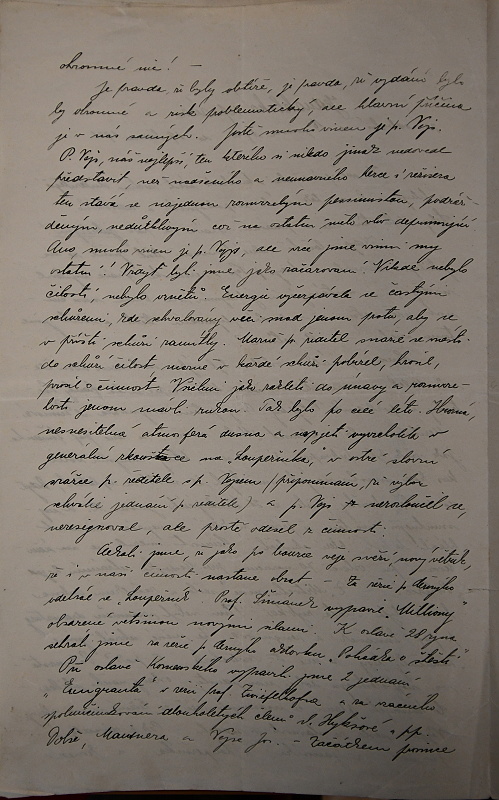 ohromné nic! —
Je pravda, ži byly obtíže, je pravda, ži vydání bylo
by ohromné a risk problematický, ale hlavní příčina
je v nás samých. Jistě mnoho vinen je p. Vojs.
P. Vojs, náš nejlepší, ten kterého si nikdo jinak nedoved
představit, než nadšeného a neúnavného herce a režiséra
ten stává se najednou rozmrzelým pessimistou, podráž-
děným, nedůtklivým což na ostatní mělo vliv deprimující
Ano, mnoho vinen je p. Vojs, ale víc jsme vinni my
ostatní! Vždyť byli jsme jako začarovaní. Nikde nebylo
čilosti, nebylo vznětu. Energie vyčerpávala se častými
schůzemi, kde schvalovány věci snad jenom proto, aby se
v příští schůzi zamítly. Marně p. ředitel snažil se vnésti
do schůzí čilost, marně v každé schůzi pobízel, hrozil,
prosil o činnost. Všichni jako zakletí do únavy a rozmrze-
losti jenom mávli rukou. Tak bylo po celé léto. Hrozná,
nesnesitelná atmosféra dusna a napjetí vyvrcholila v
generální zkoušce na „Loupežníka", v ostré slovní
srážce p. ředitele s p. Vojsem (připomínám, ži výbor
schválil jednání p. ředitele) a p. Vojs nerozloučil se,
neresignoval, ale prostě odešel z činnosti.
Čekali jsme, ži jako po bouřce věje svěží, nový větřík,
že i v naší činnosti nastane obrat — Za režie p.
odehrál se „Loupežník" Prof. Šimánek vypravil „Milliony"
obsazené většinou novými silami. K oslavě 28. října
sehráli jsme za režie p. aktovku „Pohádka o štěstí"
Při oslavě Komenského vypravili jsme 2 jednání
„Emigranta" v režii prof. Zwiefelhofra a za vzácného
spoluúčinkování dlouholetých členů sl. Hykšové a pp.
Dolše, Mautnera a Vojse jr. — Začátkem prosince